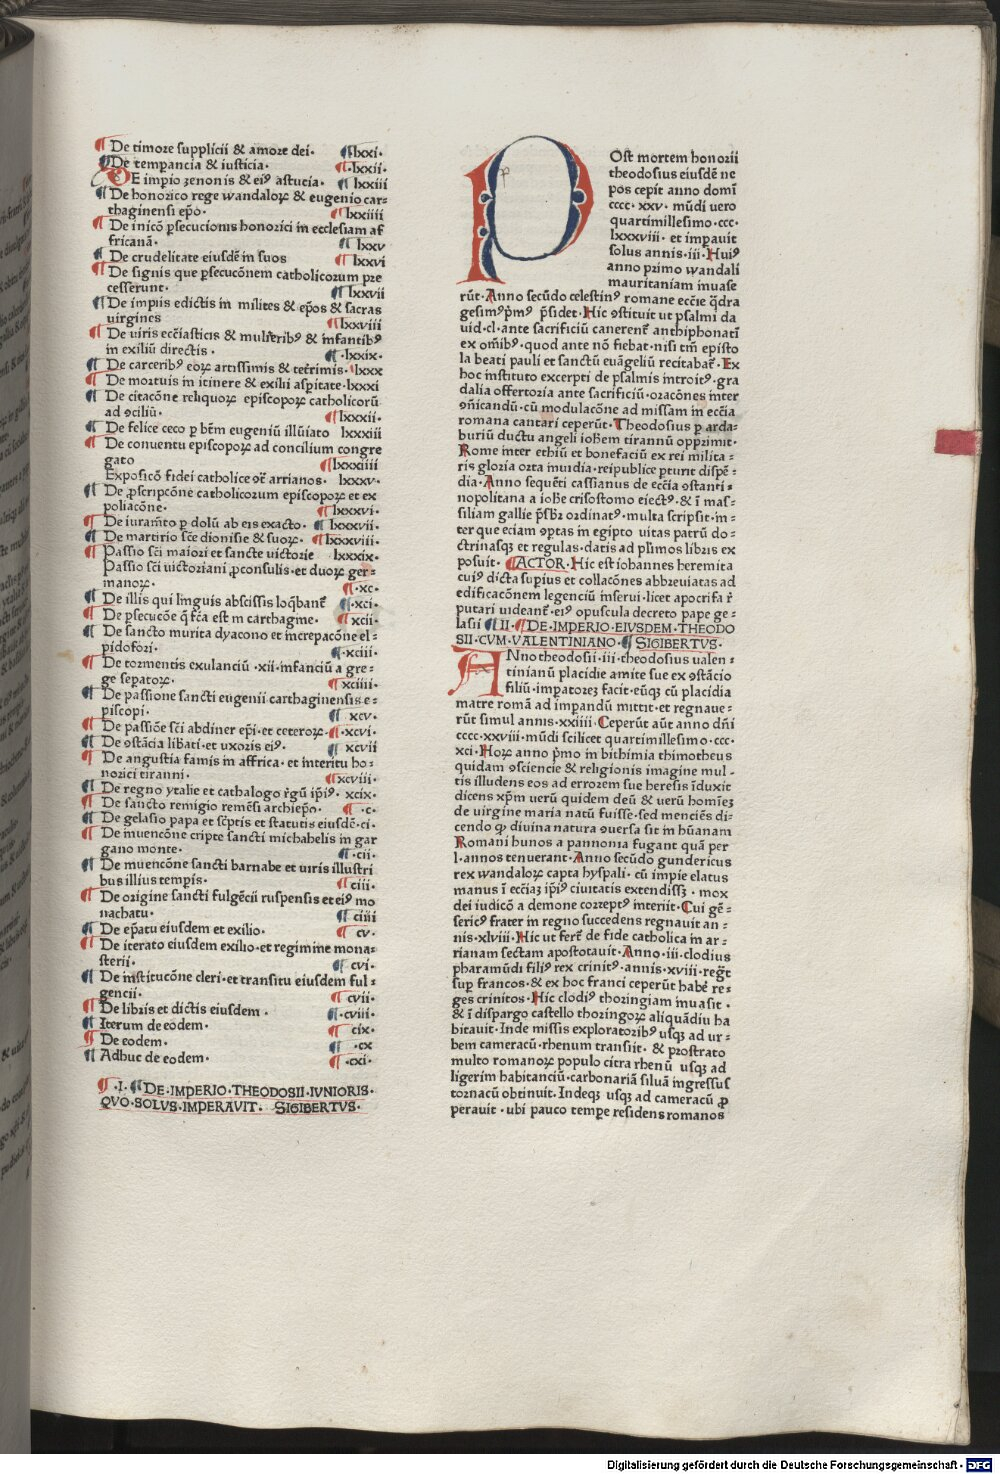 ¶ De timore supplicii & amore dei· ¶lxxi·
¶De temperancia & iusticia· ¶·lxxii·
DE impio zenonis & eiꝰ astucia· ¶ lxxiii
¶ De honorico rege wandaloꝝ & eugenio car-
thaginensi ep̄o· ¶ lxxiiii
¶ De inicō ꝑsecucionis honorici in ecclesiam af
fricanā· ¶ lxxv
¶ De crudelitate eiusdē in suos ¶ lxxvi
¶ De signis que ꝑsecucōnem catholicorum pre
cesserunt· ¶ lxxvii
¶ De impiis edictis in milites & ep̄os & sacras
uirgines ¶ lxxviii
¶ De uiris ecc̄iasticis & mulieribꝰ & infantibꝰ
in exiliū directis · ¶ ·lxxix·
¶ De carceribꝰ eoꝝ artissimis & tetrimis· ¶lxxx
¶ De mortuis in itinere & exilii asꝑitate·lxxxi
¶ De citacōne reliquoꝝ episcopoꝝ catholicorū
ad ꝯciliū· ¶ lxxxii·
¶ De felice ceco ꝑ bt̄m eugeniū illūiato lxxxiii
¶ De conuentu episcopoꝝ ad concilium congre
gato ¶ lxxxiiii
Exposicō fidei catholice ꝯt̄ arrianos· lxxxv·
¶ De ꝓscripcōne catholicorum episcopoꝝ et ex
poliacōne· ¶ lxxxvi·
¶ De iuram̄to ꝑ dolū ab eis exacto· ¶ lxxxvii·
¶ De martirio sc̄e dionisie & suoꝝ· ¶ lxxxviii·
¶ Passio sc̄i maiori et sancte uictorie lxxxix·
Passio sc̄i uictoriani ꝓconsulis·et duoꝝ ger-
manoꝝ· ¶ ·xc·
¶ De illis qui linguis abscissis loq̄bant̄ ¶ ·xci·
¶ De ꝑsecucōe q̄ fc̄a est in carthagine· ¶ xcii·
¶ De sancto murita dyacono et increpacōne el-
pidofori· ¶ ·xciii·
¶ De tormentis exulanciū ·xii·infanciū a gre-
ge seꝑatoꝝ· ¶ xciiii·
¶ De passione sancti eugenii carthaginensis e-
piscopi· ¶ xcv·
¶ De passiōe sc̄i abdiner ep̄i·et ceteroꝝ· ¶·xcvi·
¶ De ꝯstācia libati·et uxoris eiꝰ· ¶ xcvii
¶ De angustia famis in affrica· et interitu ho-
norici tiranni· ¶ xcviii·
¶ De regno ytalie et cathalogo r̄gū ip̄iꝰ· xcix·
¶ De sancto remigio remēsi archiep̄o· ¶ ·c·
¶ De gelasio papa et sc̄ptis et statutis eiusdē·ci·
¶ De inuencōne cripte sancti michahelis in gar
gano monte· ¶ ·cii·
¶ De inuencōne sancti barnabe et uiris illustri
bus illius temꝑis· ¶ ciii·
¶ De origine sancti fulgēcii ruspensis et eiꝰ mo
nachatu· ¶ ciiii
¶ De ep̄atu eiusdem et exilio· ¶ cv·
¶ De iterato eiusdem exilio·et regimine mona-
sterii· ¶ cvi·
¶ De institucōne cleri·et transitu eiusdem ful-
gencii· ¶ cvii·
¶ De libris et dictis eiusdem · ¶ ·cviii·
¶ Iterum de eodem· ¶ cix·
¶ De eodem· ¶ ·cx
¶ Adhuc de eodem· ¶ ·cxi·
¶ ·I· ¶DE·IMPERIO·THEODOSII·IVNIORIS·
QVO·SOLVS·IMPERAVIT· SIGIBERTVS·
POst mortem honorii
theodosius eiusdē ne
pos cepit anno domī
cccc· xxv· mūdi uero
quartimillesimo·ccc·
lxxxviii· et impauit
solus annis·iii·Huiꝰ
anno primo wandali
mauritaniam inuase
rūt·Anno secūdo celestinꝰ romane ecc̄ie q̄dra
gesimꝰp̄mꝰ p̄sidet·Hic ꝯstituit ut psalmi da
uid·cl·ante sacrificiū canerent̄ anthiphonatī
ex om̄ibꝰ·quod ante nō fiebat·nisi tm̄ episto
la beati pauli et sanctū euāgeliū recitabat̄·Ex
hoc instituto excerpti de psalmis introitꝰ·gra
dalia offertoria ante sacrificiū·oracōnes inter
ꝯm̄icandū·cū modulacōne ad missam in ecc̄ia
romana cantari ceperūt·Theodosius ꝑ arda-
buriū ductu angeli ioh̄em tirannū oppr̄imit·
Rome inter ethiū et bonefaciū ex rei milita-
ris gloria orta inuidia·reipublice ꝑturit dispē-
dia·Anno sequēti cassianus de ecc̄ia ꝯstanti-
nopolitana a ioh̄e crisostomo eiectꝰ·& ī mas-
siliam gallie p̄sbr̄ ordinatꝰ·multa scripsit·in-
ter que eciam ꝯptas in egipto uitas patrū do-
ctrinasqꝫ et regulas·datis ad pl̄imos libris ex
posuit· ¶ACTOR·Hic est iohannes heremita
cuiꝰ dicta supius et collacōnes abbreuiatas ad
edificacōnem legenciū inserui·licet apocrifa r̄
putari uideant̄·eiꝰ opuscula decreto pape ge-
lasii ¶II·¶DE·IMPERIO·EIVSDEM·THEODO
SII·CVM·VALENTINIANO·¶SIGIBERTVS·
ANno theodosii·iii·theodosius ualen-
tinianū placidie amite sue ex ꝯstācio
filiū·imꝑatoreꝫ facit·eūqꝫ cū placidia
matre romā ad impandū mittit·et regnaue-
rūt simul annis·xxiiii·Ceperūt aūt anno dn̄i
cccc·xxviii·mūdi scilicet quartimillesimo·ccc·
xci·Hoꝝ anno p̄mo in bithimia thimotheus
quidam ꝯsciencie & religionis imagine mul-
tis illudens eos ad errorem sue heresis īduxit
dicens xp̄m uerū quidem deū & uerū homīeꝫ
de uirgine maria natū fuisse·sed menciēs di-
cendo ꝙ diuina natura ꝯuersa sit in hūanam
Romani hunos a pannonia fugant quā per
l·annos tenuerant·Anno secūdo gundericus
rex wandaloꝝ capta hyspali·cū impie elatus
manus ī ecc̄iaꝫ ip̄iꝰ ciuitatis extendissꝫ·mox
dei iudicō a demone correptꝰ interiit·Cui gē-
sericꝰ frater in regno succedens regnauit an-
nis·xlviii·Hic ut fert̄ de fide catholica in ar-
rianam sectam apostotauit·Anno·iii·clodius
pharamūdi filiꝰ rex crinitꝰ·annis·xviii·reḡt
suꝑ francos·& ex hoc franci ceperūt habē re-
ges crinitos·Hic clodiꝰ thoringiam inuasit·
& ī dispargo castello thoringoꝝ aliquādiu ha
bitauit·Inde missis exploratoribꝰ usqꝫ ad ur-
bem cameracū·rhenum transiit·& prostrato
multo romanoꝝ populo citra rhenū usqꝫ ad
ligerim habitanciū·carbonariā siluā ingressus
tornacū obtinuit·Indeqꝫ usqꝫ ad cameracū ꝓ
perauit·ubi pauco tempe residens romanos
Digitalisierung gefördert durch die Deutsche Forschungsgemeinschaft - DFG